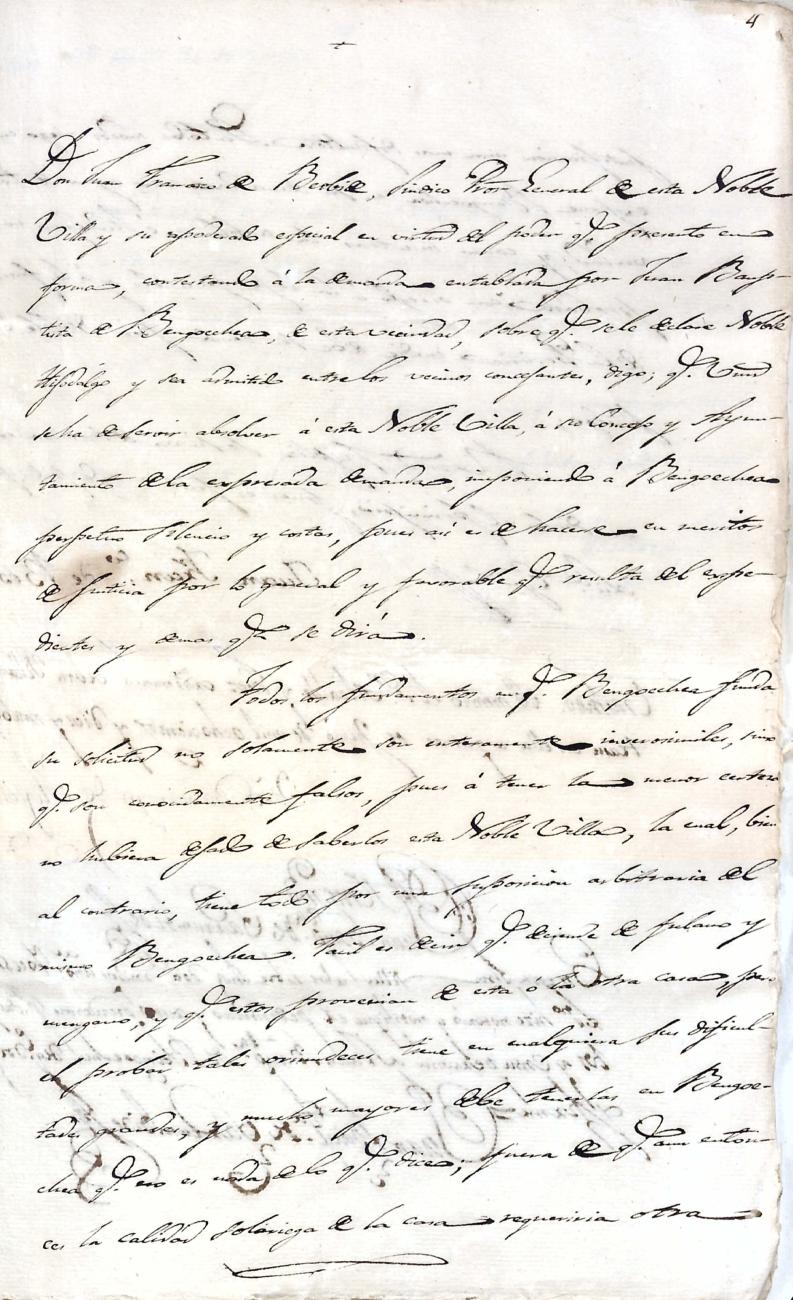 4
Don Juan Francisco de Berbide, Sindico Pror General de esta Noble
Villa y su apoderado especial en virtud del poder qe. presento en
forma, contestando á la demanda entablada por Juan Baup-
tista de Bengoechea, de esta vecindad, sobre qe. se le declare Noble
Hijodalgo y sea admitido entre los vecinos concejantes, digo; qe. Vmd
se ha de servir absolver á esta Noble Villa, á su Concejo y Ayun-
tamiento de la expresada demanda, imponiendo á Bengoechea
perpetuo silencio y costas, pues asi es de hacerse en meritos
de Justicia por lo general y favorable qe. resulta del expe-
diente y demas qe. se dirá.
Todos los fundamentos en qe. Bengoechea funda
su solicitud no solamente son enteramente inverosimiles, sino
qe. son conocidamente falsos, pues á tener la menor certeza
no hubiera dejado de saberlos esta Noble Villa, la cual, bien
al contrario, tiene todo por una suposicion arbitraria del
mismo Bengoechea. Facil es decir qe. deciende de fulano y
mengano, y qe. estos provenian de esta ó la otra casa, pero
el probar tales oriundeces tiene en cualquiera sus dificul-
tades grandes, y mucho mayores debe tenerlas en Bengoe-
chea qe. eso es nada de lo qe. dice, fuera de qe. aun enton-
ces la calidad solariega de la casa requeriria otra